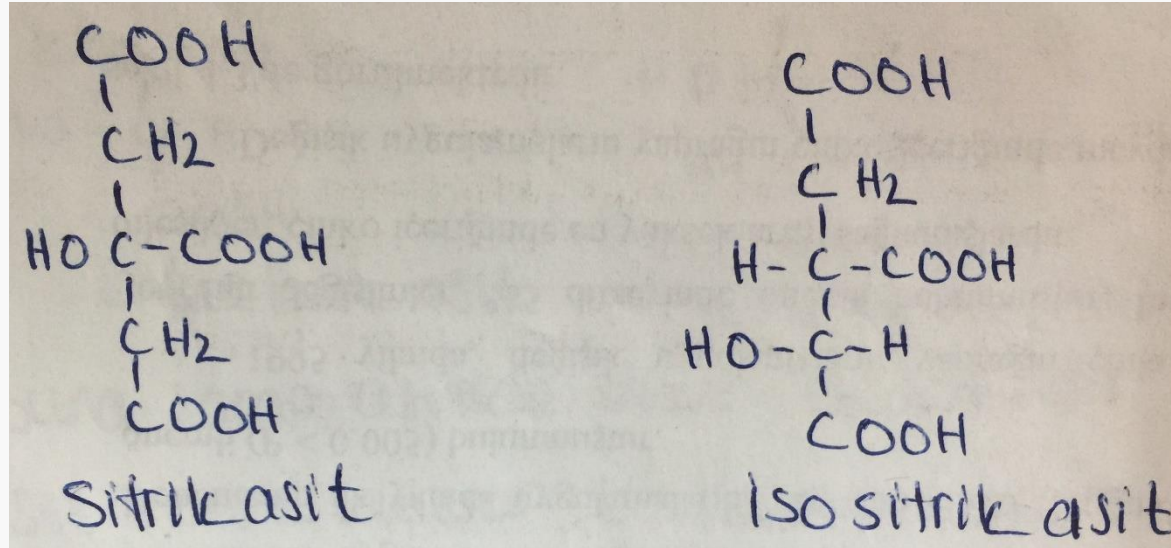 COOH
CH2
HO C-COOH
CH2
COOH
Sitrik asit
COOH
CH2
H-C-COOH
HO-C-H
COOH
Iso sitrik asit